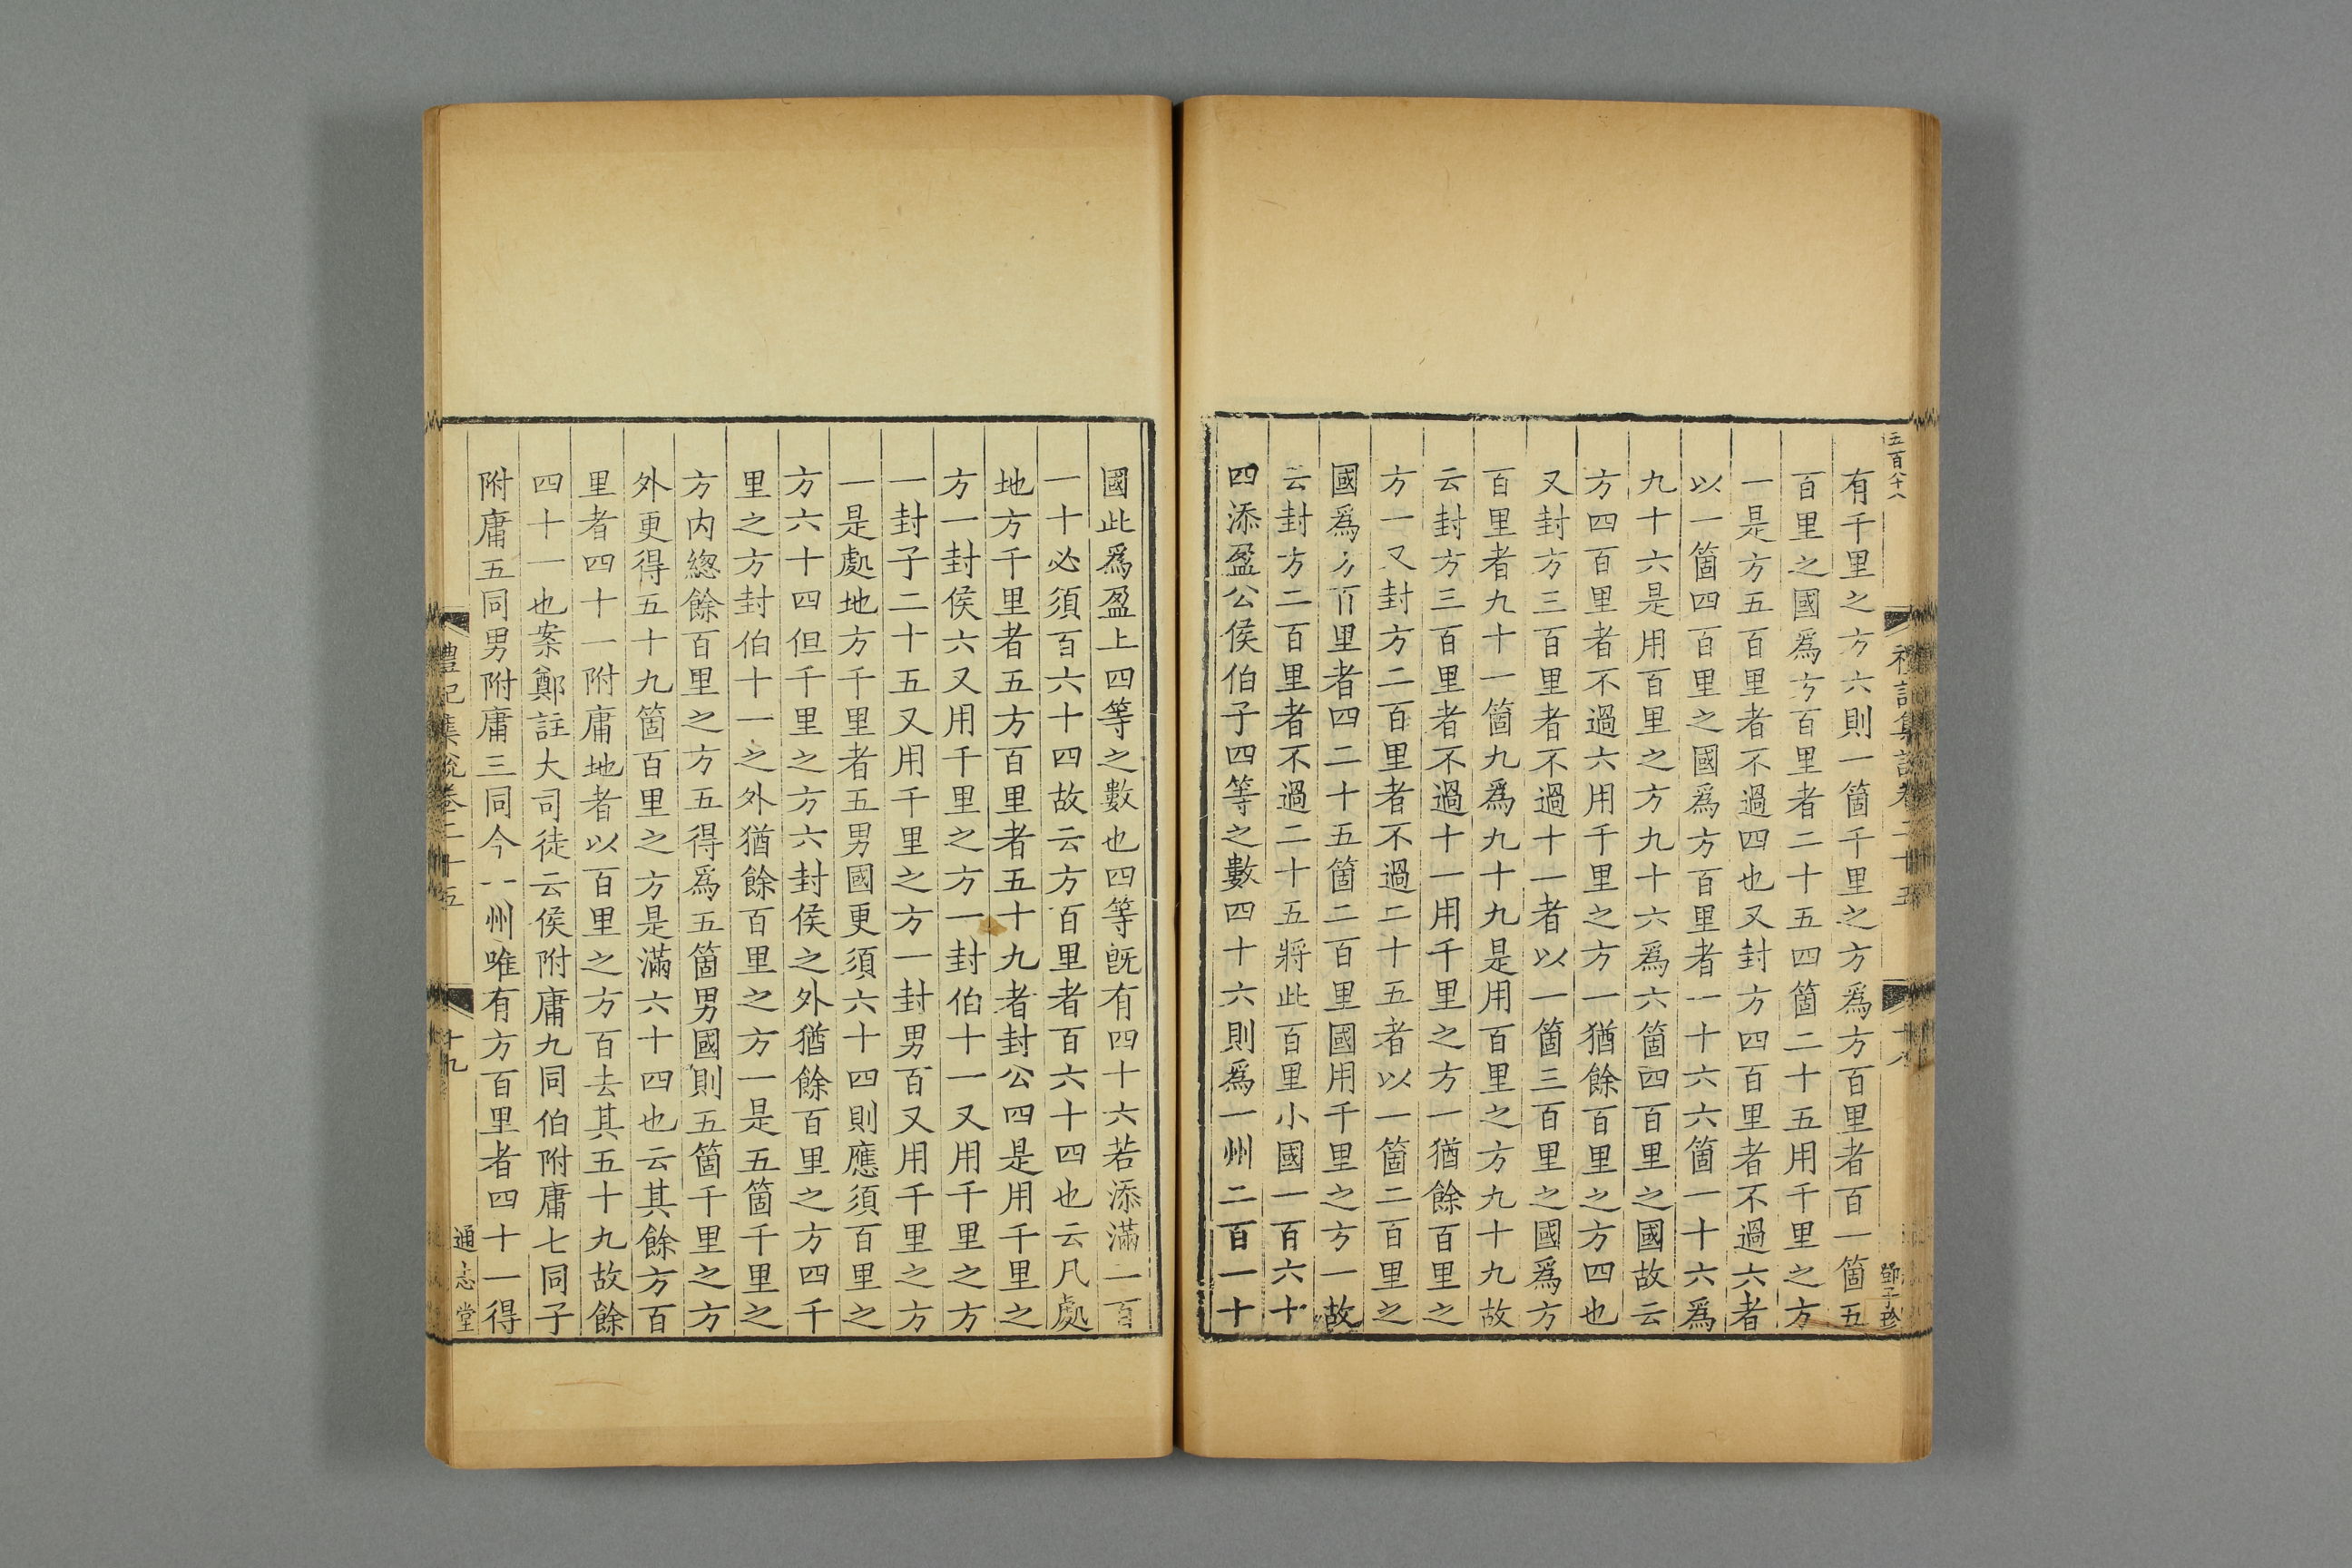 五百八十八
禮記集說卷二十五
十八
鄧子珍
有千里之方六則一箇千里之方爲方百里者百一箇五
百里之國爲方百里者二十五四箇二十五用千里之方
一是方五百里者不過四也又封方四百里者不過六者
以一箇四百里之國爲方百里者一十六六箇一十六爲
九十六是用百里之方九十六爲六箇四百里之國故云
方四百里者不過六用千里之方一猶餘百里之方四也
又封方三百里者不過十一者以一箇三百里之國爲方
百里者九十一箇九爲九十九是用百里之方九十九故
云封方三百里者不過十一用千里之方一猶餘百里之
方一又封方二百里者不過二十五者以一箇二百里之
國爲方百里者四二十五箇二百里國用千里之方一故
云封方二百里者不過二十五將此百里小國一百六十
四添盈公侯伯子四等之數四十六則爲一州二百一十
國此爲盈上四等之數也四等旣有四十六若添滿一百
一十必須百六十四故云方百里者百六十四也云凡處
地方千里者五方百里者五十九者封公四是用千里之
方一封侯六又用千里之方一封伯十一又用千里之方
一封子二十五又用千里之方一封男百又用千里之方
一是處地方千里者五男國更須六十四則應須百里之
方六十四但千里之方六封侯之外猶餘百里之方四千
里之方封伯十一之外猶餘百里之方一是五箇千里之
方內緫餘百里之方五得爲五箇男國則五箇千里之方
外更得五十九箇百里之方是滿六十四也云其餘方百
里者四十一附庸地者以百里之方百去其五十九故餘
四十一也案鄭註大司徒云侯附庸九同伯附庸七同子
附庸五同男附庸三同今一州唯有方百里者四十一得
禮記集說卷二十五
十九
通志堂